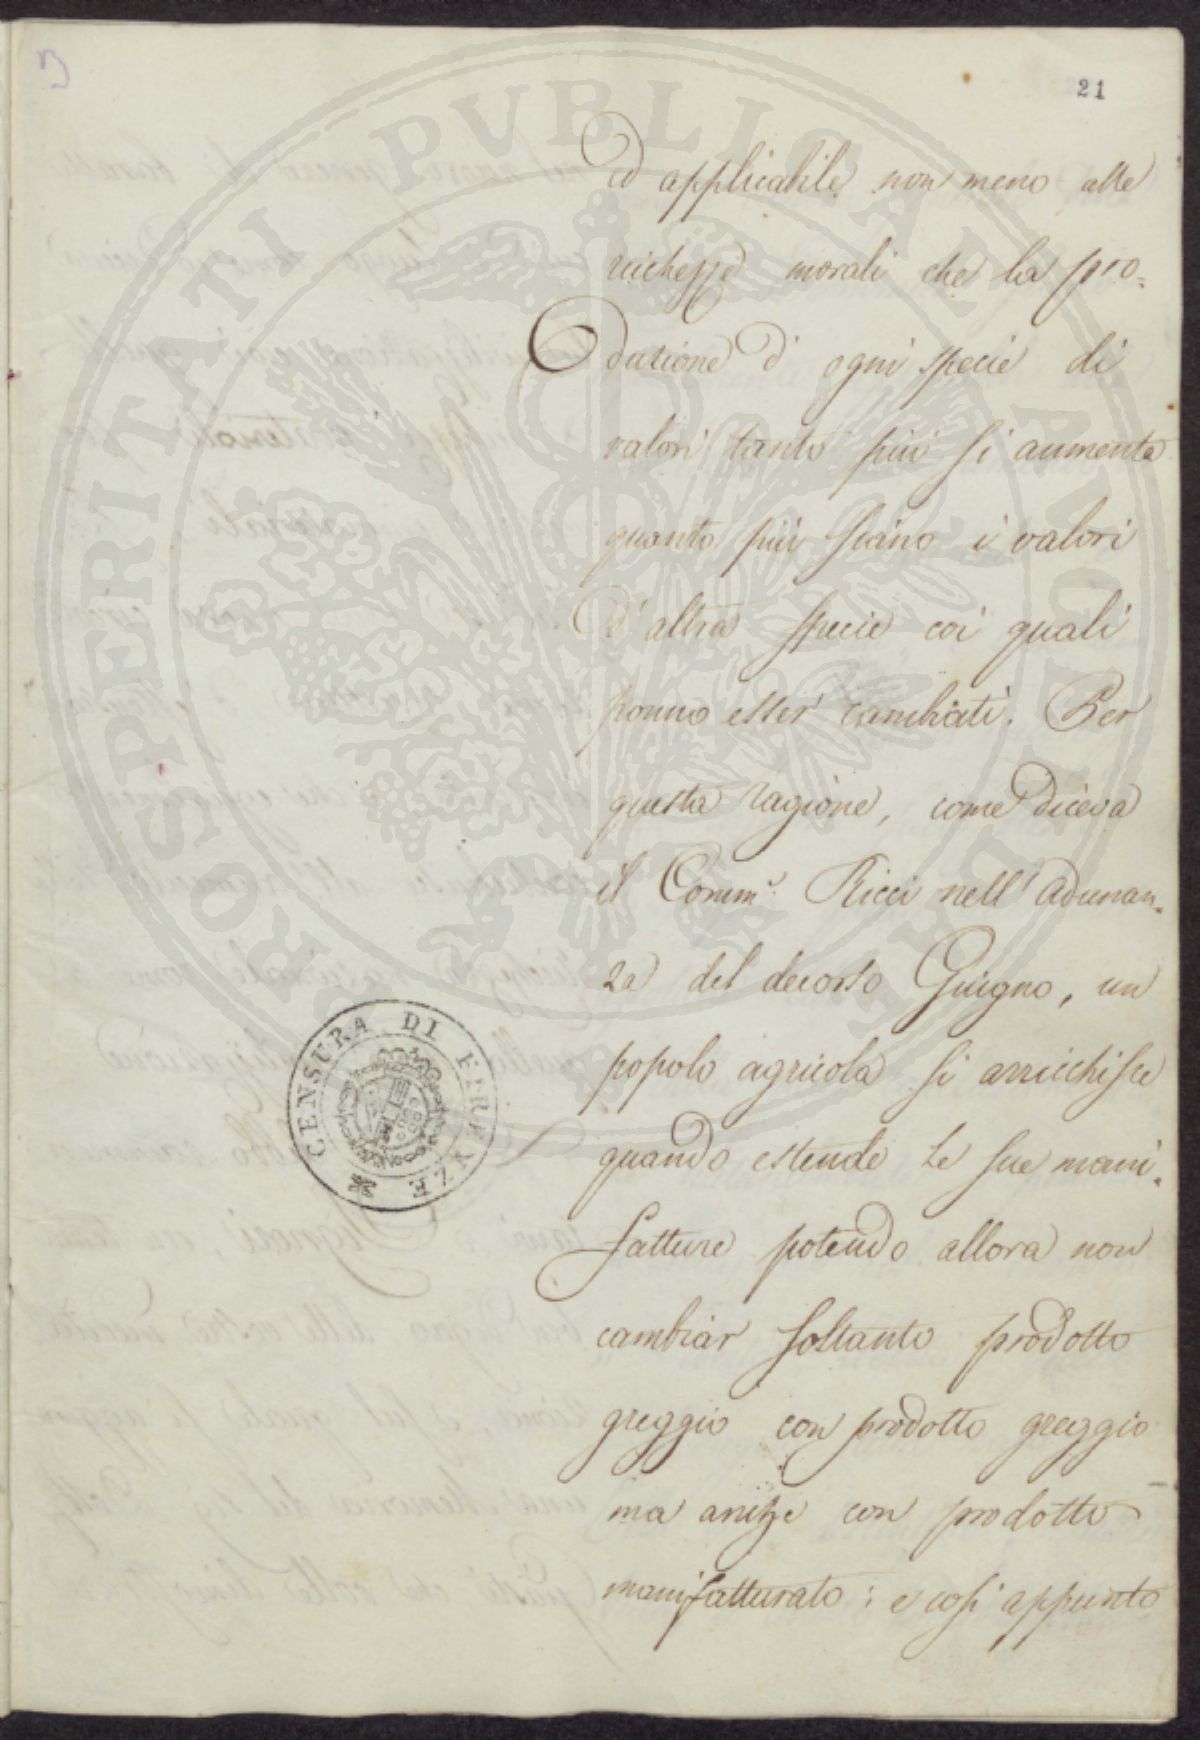 21
ed applicabile non meno alle
ricchezze morali che la pro=
duzione d' ogni specie di
valori tanto più si aumenta
quanto più siano i valori
d' altra specie coi quali
ponno esser cambiati. Per
questa ragione, come diceva
il Comm.e Ricci nell' adunan=
za del decorso Giugno, un
popolo agricola si arricchisce
quando estende le sue mani=
fatture potendo allora non
cambiar soltanto prodotto
greggio con prodotto greggio
ma anche con prodotto
manifatturato: e così appunto
CENSURA DI FIRENZE
PROSPERITATI PUBLICAE AUGENDAE